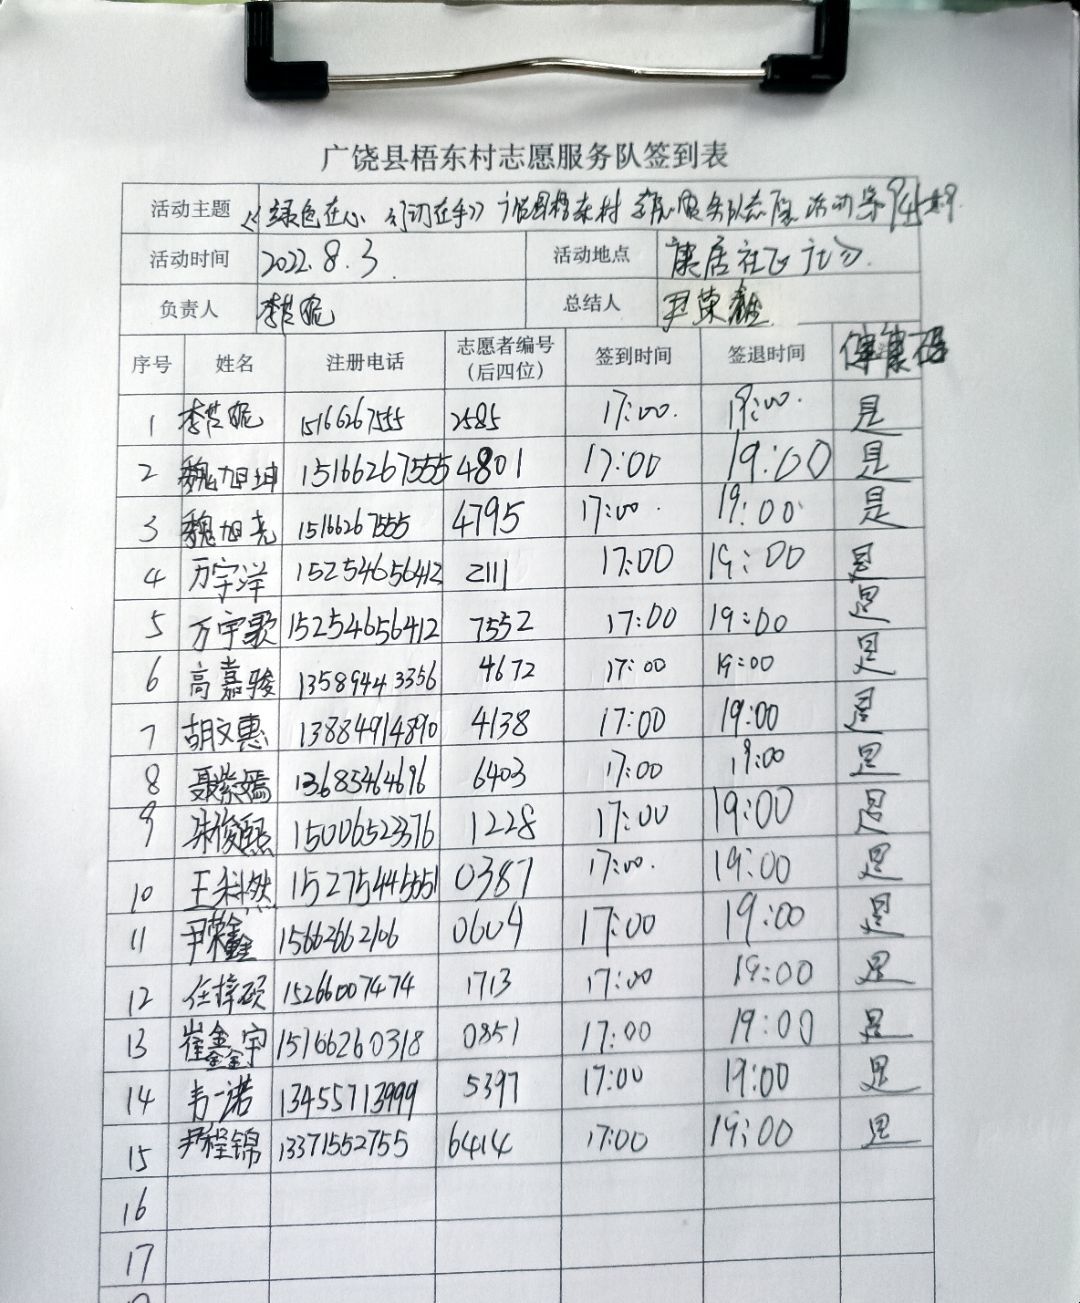 广饶县梧东村志愿服务队签到表
活动主题 《绿色在心 行动在手》广饶县梧东村志愿服务队志愿活动第94期
活动时间 2022.8.3. 活动地点 康居社区北
负责人 李 妮 总结人 尹荣鑫
序号 姓名 注册电话 志愿者编号（后四位） 签到时间 签退时间 健康码
1 李 妮 15166267555 2585 17:00. 19:00. 是
2 魏旭坤 15166267555 4801 17:00 19:00 是
3 魏旭尧 15166267555 4795 17:00. 19:00 是
4 万宇洋 15254656412 2111 17:00 19:00 是
5 万宇歌 15254656412 7552 17:00 19:00 是
6 高嘉骏 13589443356 4672 17:00 19:00 是
7 胡文惠 13884914890 4138 17:00 19:00 是
8 聂紫嫣 13685464696 6403 17:00 19:00 是
9 朱俊熙 15006523376 1228 17:00 19:00 是
10 王 然 15275445551 0387 17:00. 19:00 是
11 尹荣鑫 15662662106 0604 17:00 19:00 是
12 任梓硕 15266007474 1713 17:00 19:00 是
13 崔鑫宇 15166260318 0851 17:00 19:00 是
14 韦一诺 13455713999 5397 17:00 19:00 是
15 尹程锦 13371552755 6414 17:00 19:00 是
16
17